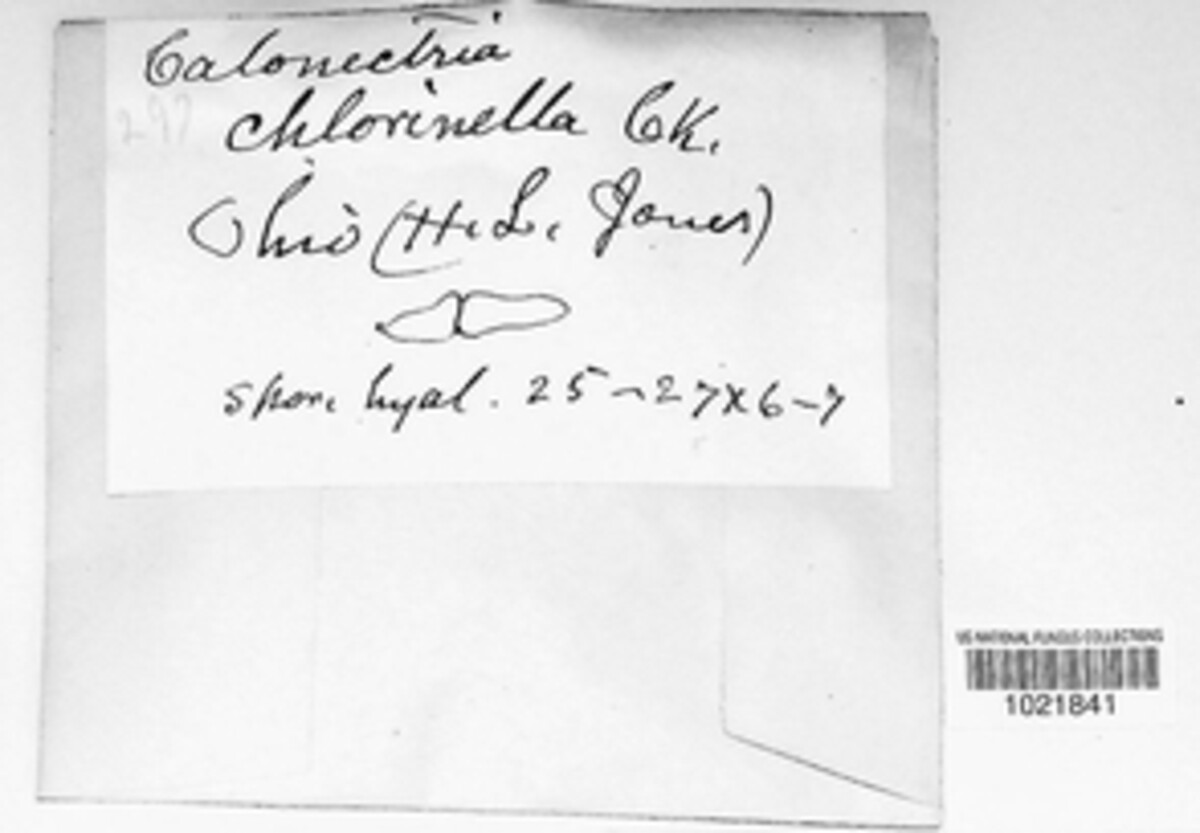 Calonectria
297
chlorinella Ck.
Ohio (H. L. Jones)
spor. hyal. 25-27x6-7
US NATIONAL FUNGUS COLLECTIONS
1021841